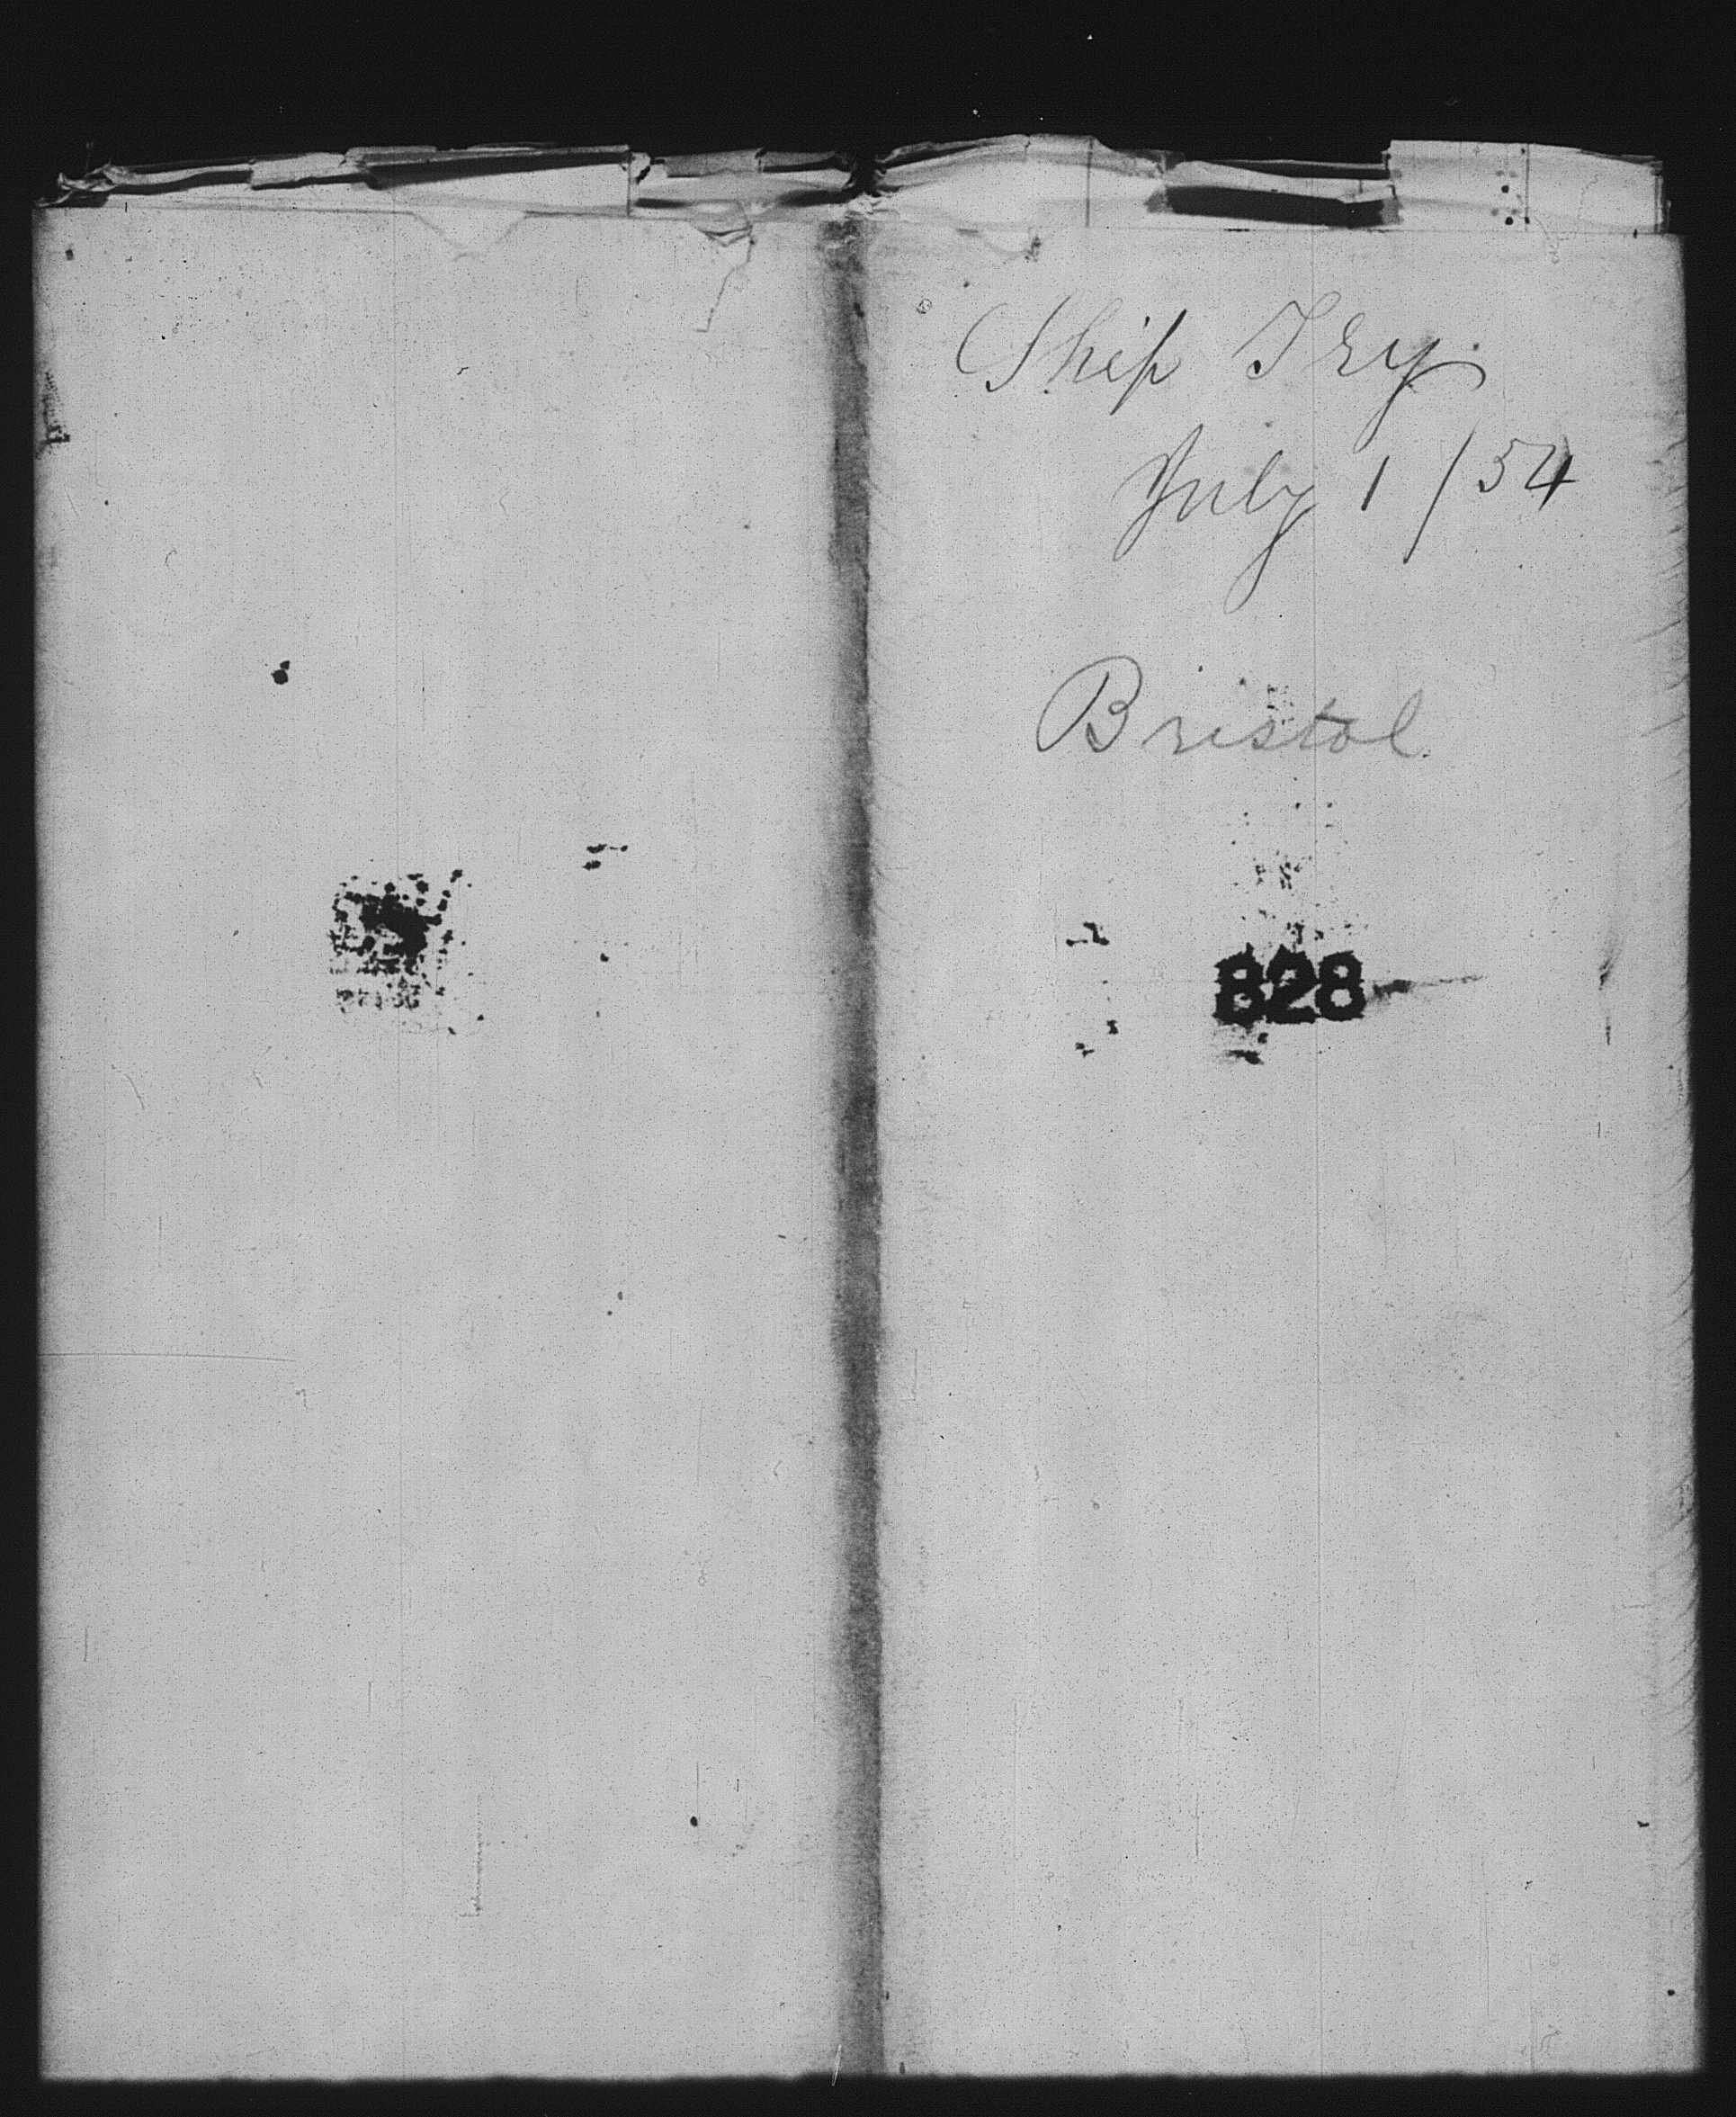 Ship Try
July 1/54
Bristol
828